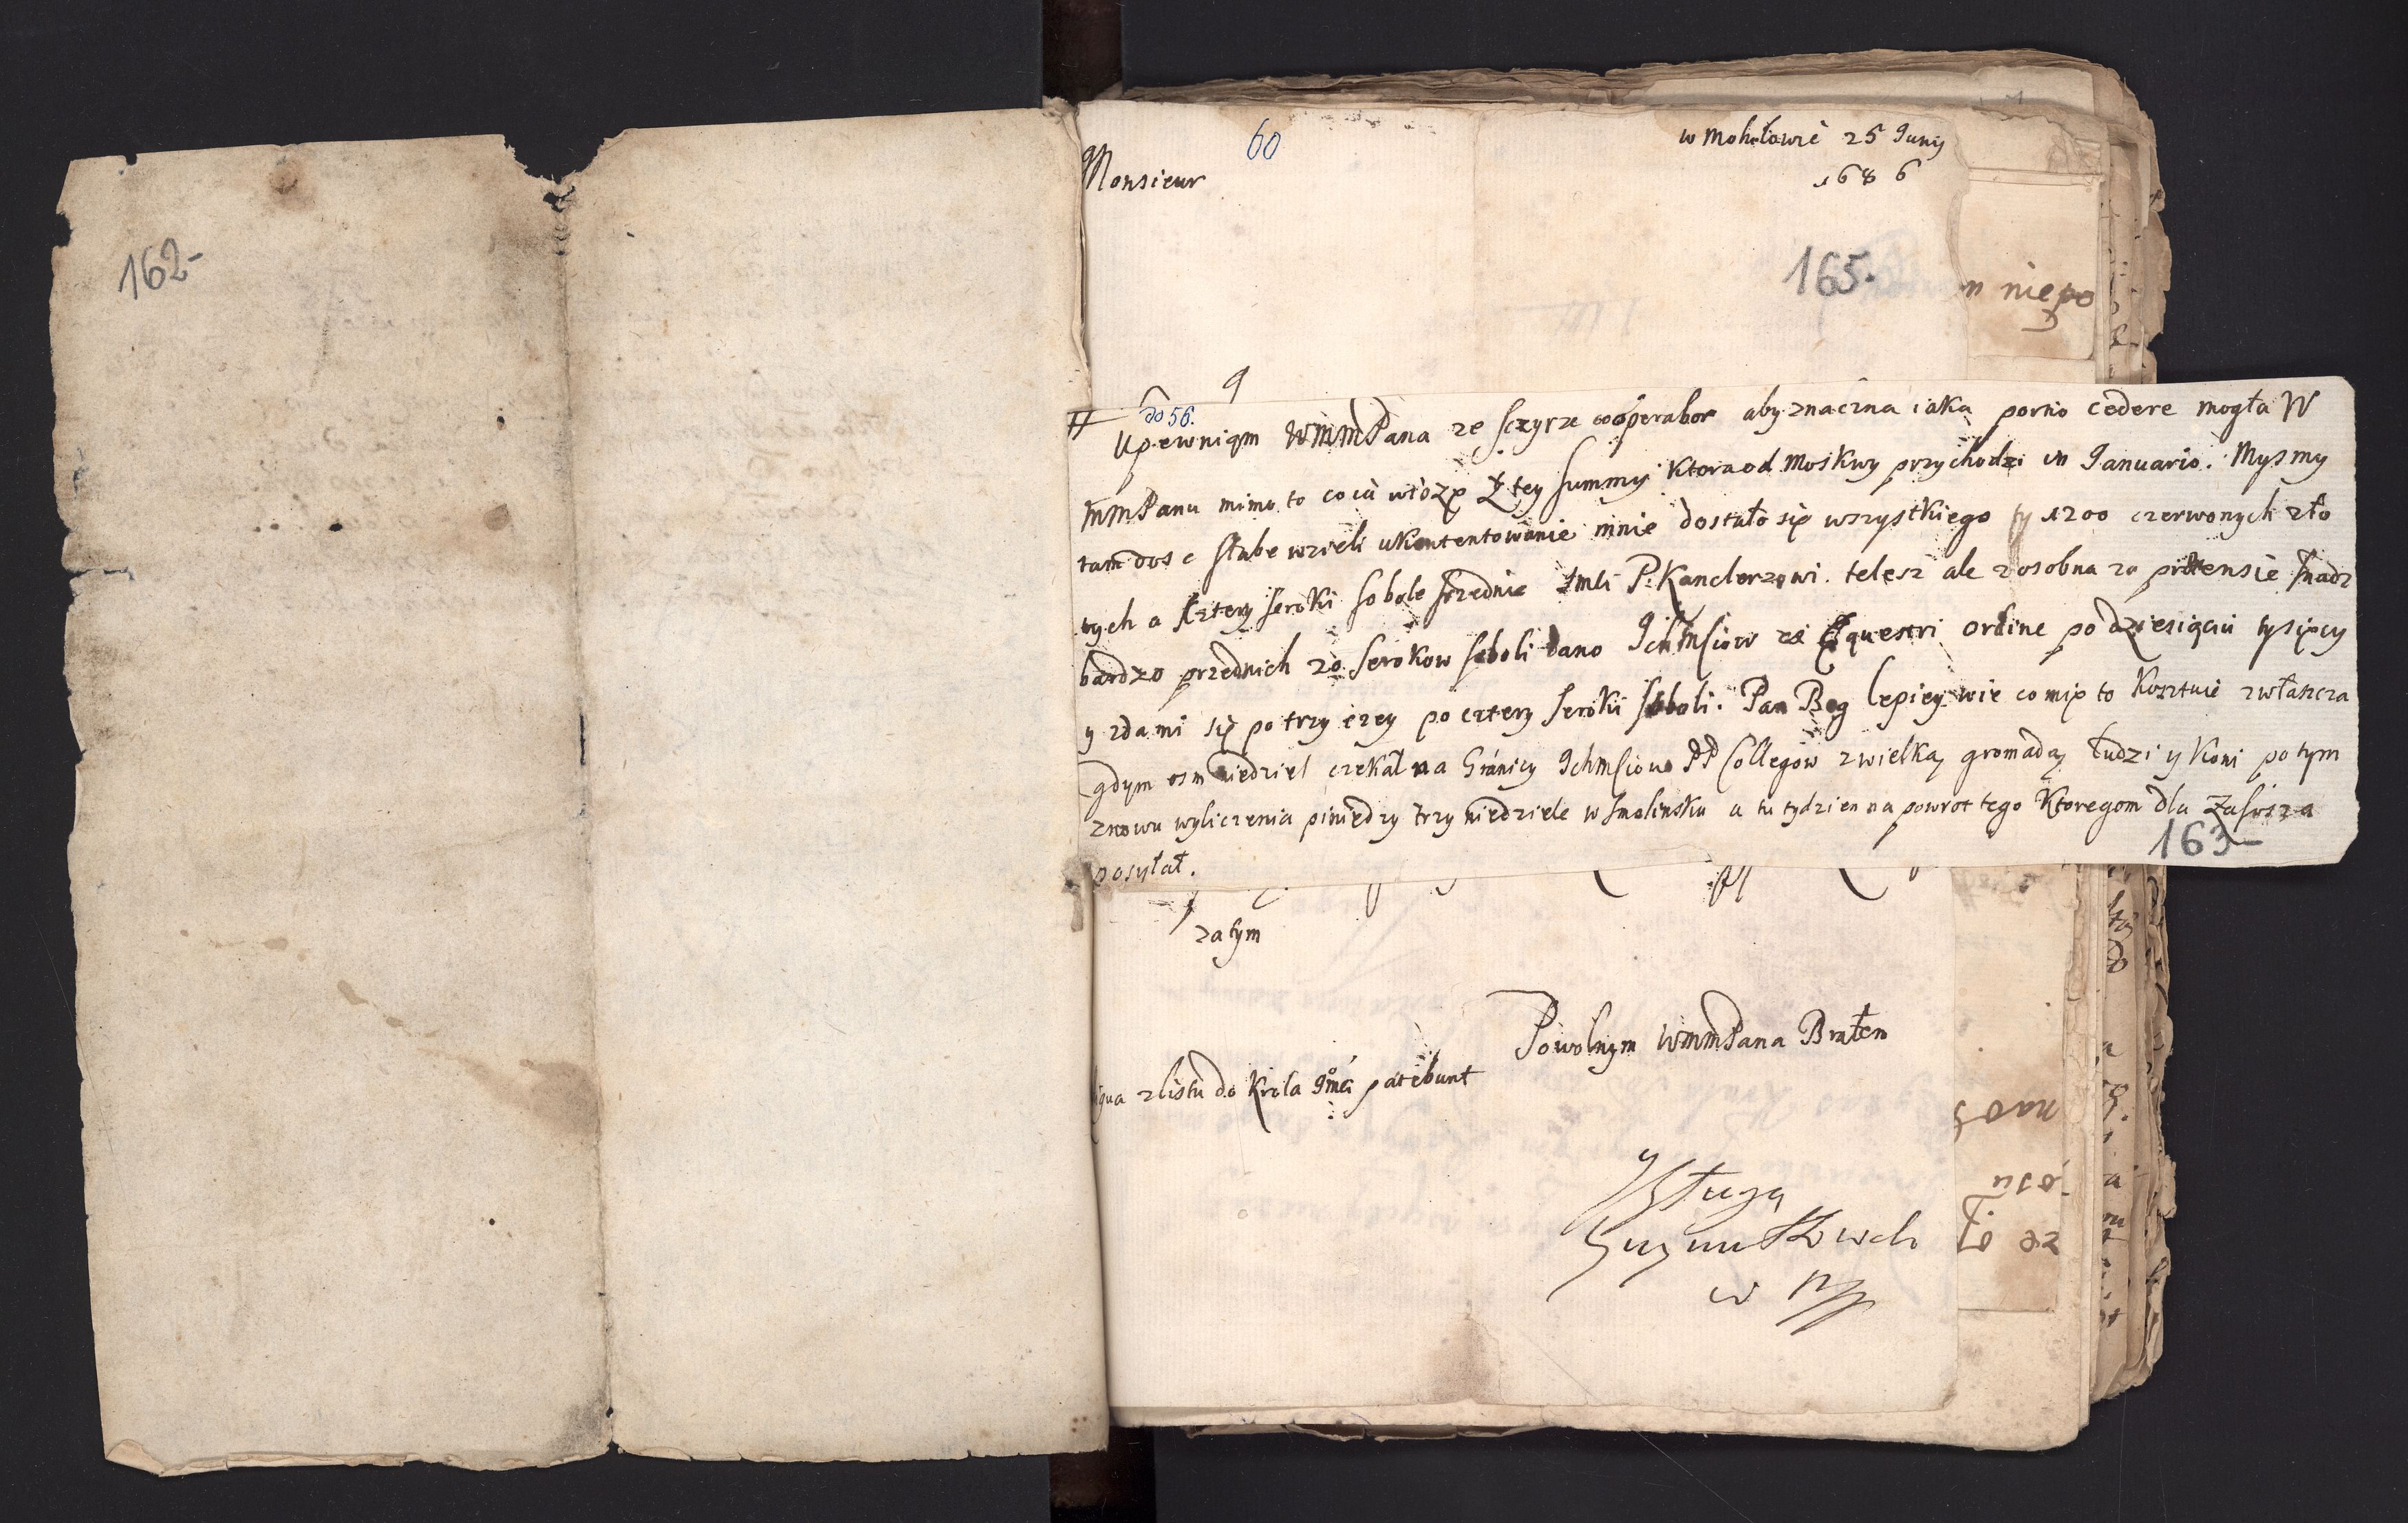 162-
60
w Mohilowie 25 Juny
1686
Monsieur
165.
n niepo
do 56.
Upewniam WMMPana ze sczyrze cooperabor aby znaczna iaka portio cedere mogła W
MMPanu mimo to co ia włozę z tey summy ktora od Moskwy przychodzi in Januario. Mysmy
tam dosc słabe wzieli ukontentowanie mnie dostało się wszystkiego ty 1200 czerwonych zło
tych a cztery seroki sobole srzednie Imci P. Kanclerzowi telesz ale z osobna za praetensie snadz
bardzo przednich 20 serokow soboli dano Ichmsciow ze Equestri ordine po dziesiąciu tysięcy
y zda mi się po trzy czey po cztery seroki soboli. Pan Bog lepiey wie co mię to kosztuie zwłascza
gdym osm niedziel czekał na Granicy Ichmsciow PP Collegow z wielką gromadą ludzi y koni potym
znowu wyliczenia piniedzy trzy niedziele w Smolinsku a tu tydzien na powrot tego ktoregom dla
posyłał.
163-
zatym
Powolnym WMMPana Bratem
z listu do Krola Jmci patebunt
y Sługą
w